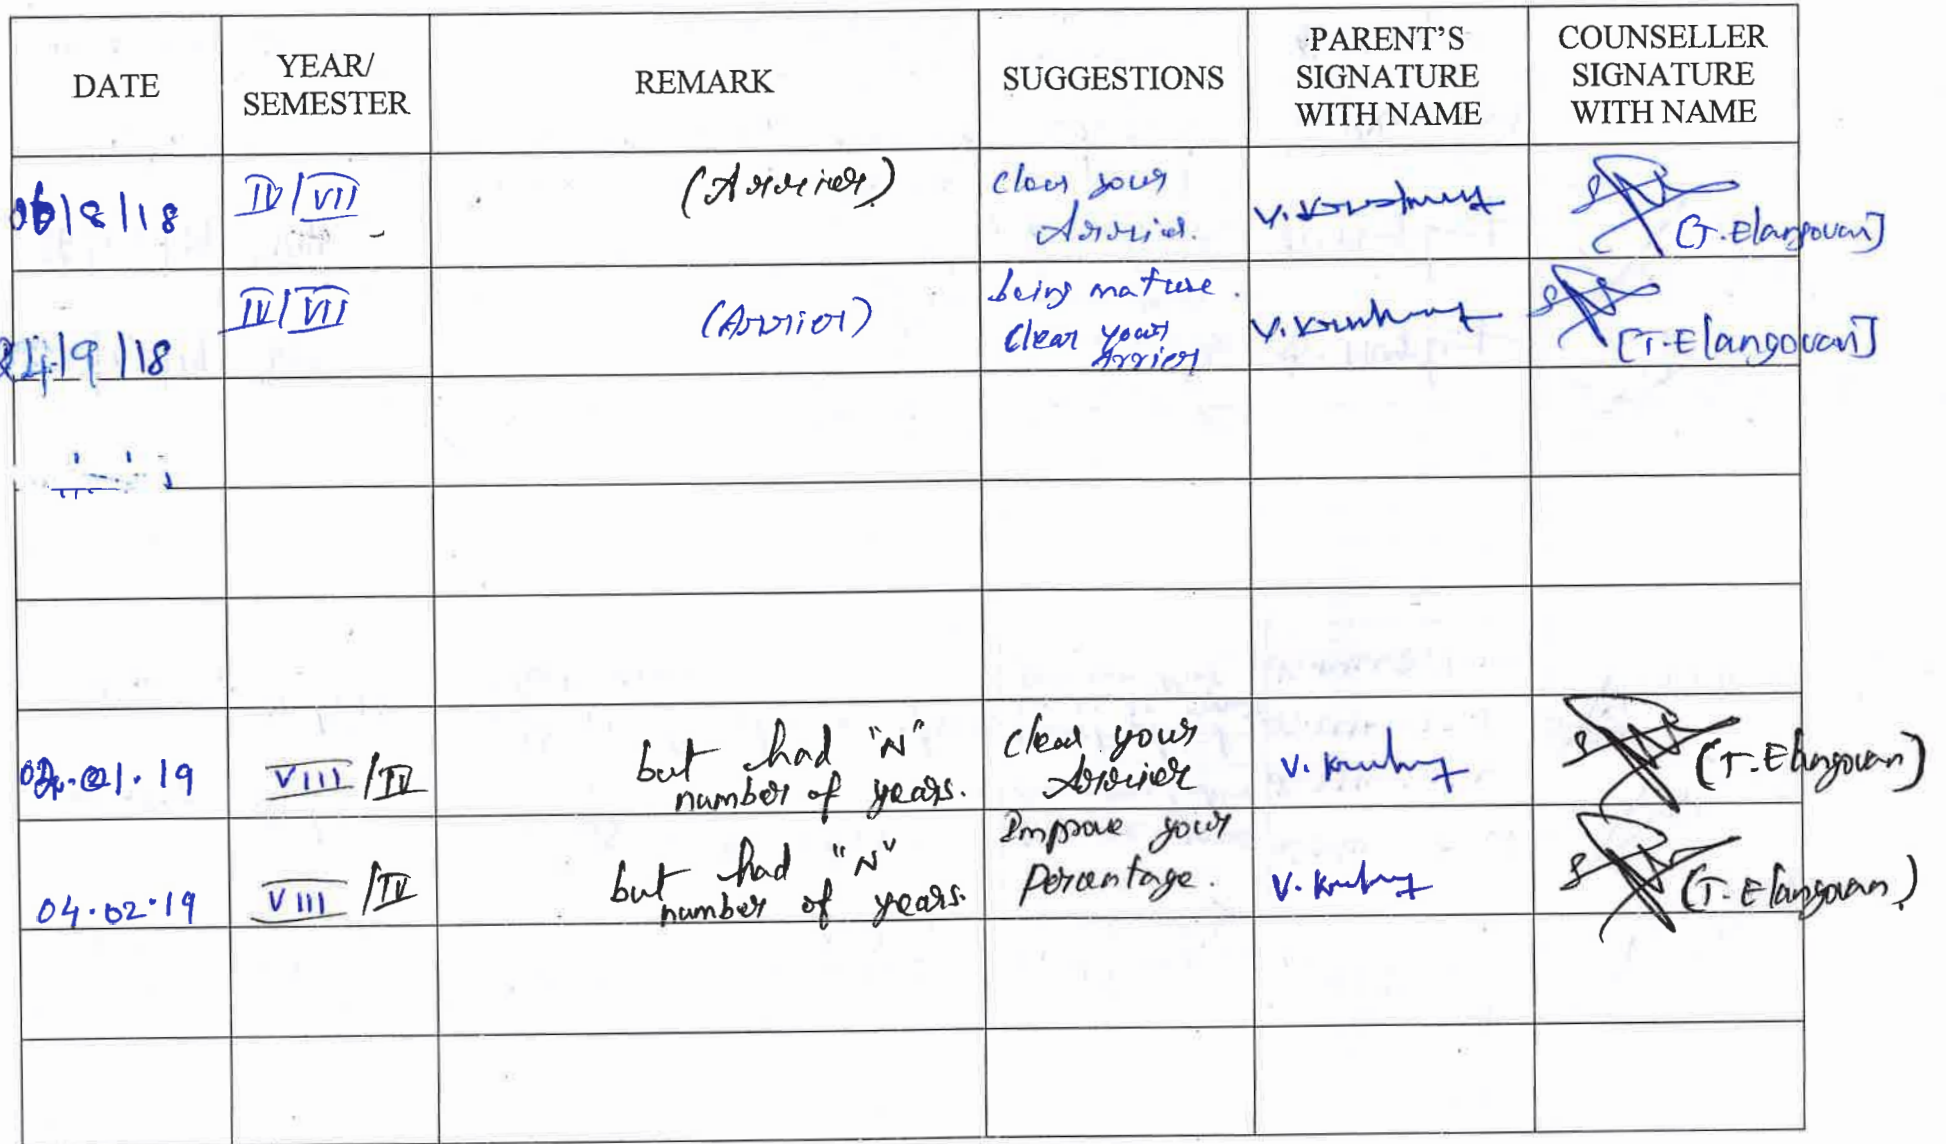 DATE
YEAR/
SEMESTER
REMARK
SUGGESTIONS
PARENT'S
SIGNATURE
WITH NAME
COUNSELLER
SIGNATURE
WITH NAME
06/8/18
IV/VII
(Arrier)
clear your
Arrier.
[T.Elangovan]
24/9/18
IV/VII
(Arrier)
being mature.
Clear your
Arrier
[T.Elangovan]
.01.19
VIII/IV
but had "N"
number of years.
Clear your
Arrier
(T.Elangovan)
04.02.19
VIII/IV
but had "N"
number of years.
Improve your
Percentage.
(T.Elangovan)